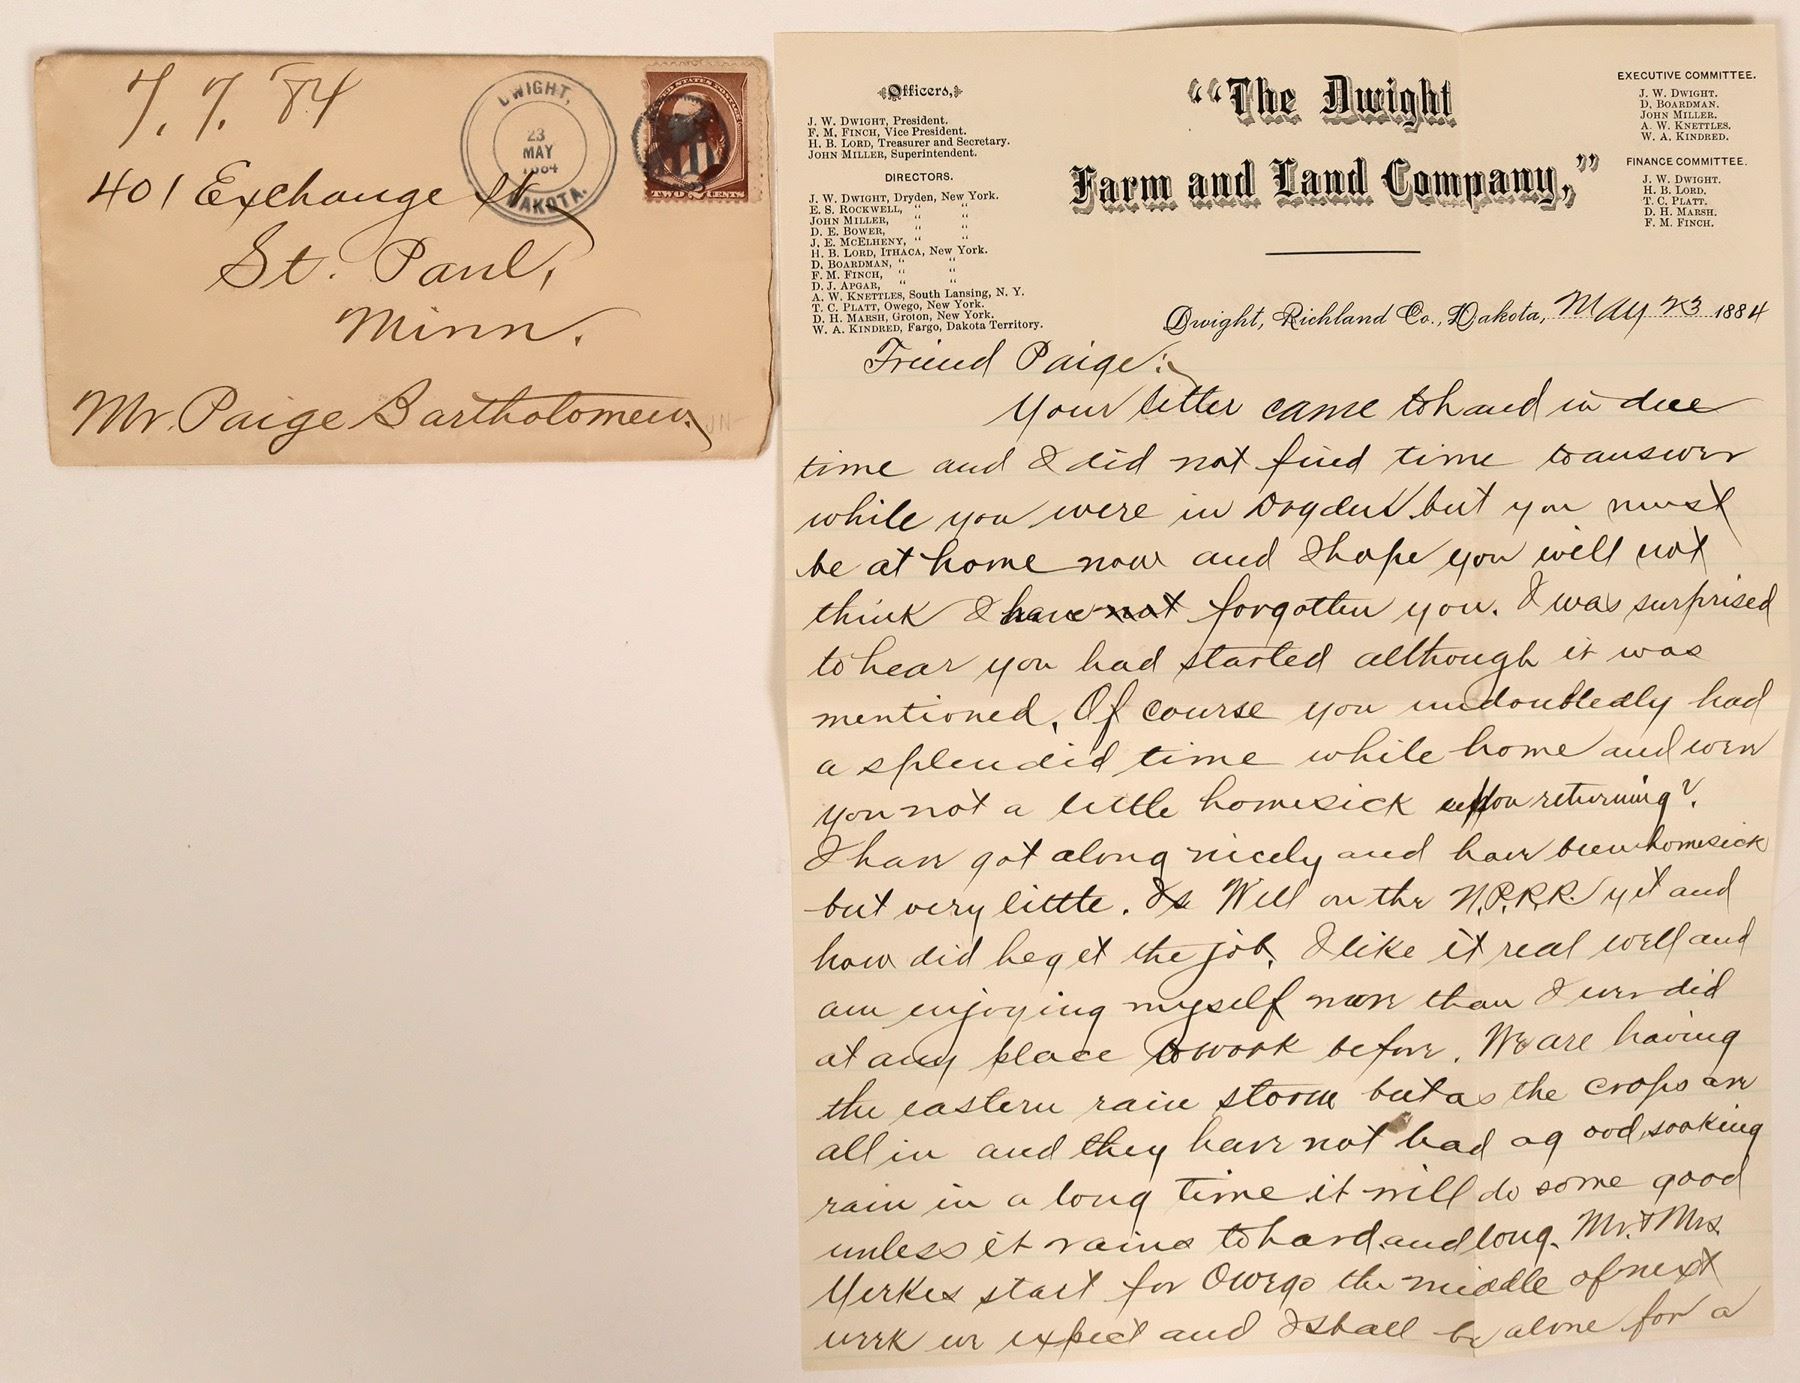 7. 7. '84
DWIGHT,
23
MAY
1884
DAKOTA.
UNITED STATES POSTAGE
TWO 2 CENTS
401 Exchange St.
St. Paul,
Minn.
Mr. Paige Bartholomew.
JN
Officers,
J. W. DWIGHT, President.
F. M. FINCH, Vice President.
H. B. LORD, Treasurer and Secretary.
JOHN MILLER, Superintendent.
DIRECTORS.
J. W. DWIGHT, Dryden, New York.
E. S. ROCKWELL, " "
JOHN MILLER, " "
D. E. BOWER, " "
J. E. MCELHENY, " "
H. B. LORD, ITHACA, New York.
D. BOARDMAN, " "
F. M. FINCH, " "
D. J. APGAR, " "
A. W. KNETTLES, South Lansing, N. Y.
T. C. PLATT, Owego, New York.
D. H. MARSH, Groton, New York.
W. A. KINDRED, Fargo, Dakota Territory.
"The Dwight
Farm and Land Company,"
EXECUTIVE COMMITTEE.
J. W. DWIGHT.
D. BOARDMAN.
JOHN MILLER.
A. W. KNETTLES.
W. A. KINDRED.
FINANCE COMMITTEE.
J. W. DWIGHT.
H. B. LORD.
T. C. PLATT.
D. H. MARSH.
F. M. FINCH.
Dwight, Richland Co., Dakota, May 23 1884
Friend Paige:
Your letter came to hand in due
time and I did not find time to answer
while you were in but you must
be at home now and I hope you will not
think I have not forgotten you. I was surprised
to hear you had started although it was
mentioned. Of course you undoubtedly had
a splendid time while home and were
you not a little homesick upon returning?.
I have got along nicely and have been homesick
but very little. Is Will on the N.P.R.R. yet and
how did he get the job. I like it real well and
am enjoying myself more than I ever did
at any place to work before. We are having
the eastern rain storm but as the crops are
all in and they have not had a good soaking
rain in a long time it will do some good
unless it rains to hard and long. Mr. & Mrs.
Yerkes start for Owego the middle of next
week we expect and I shall be alone for a